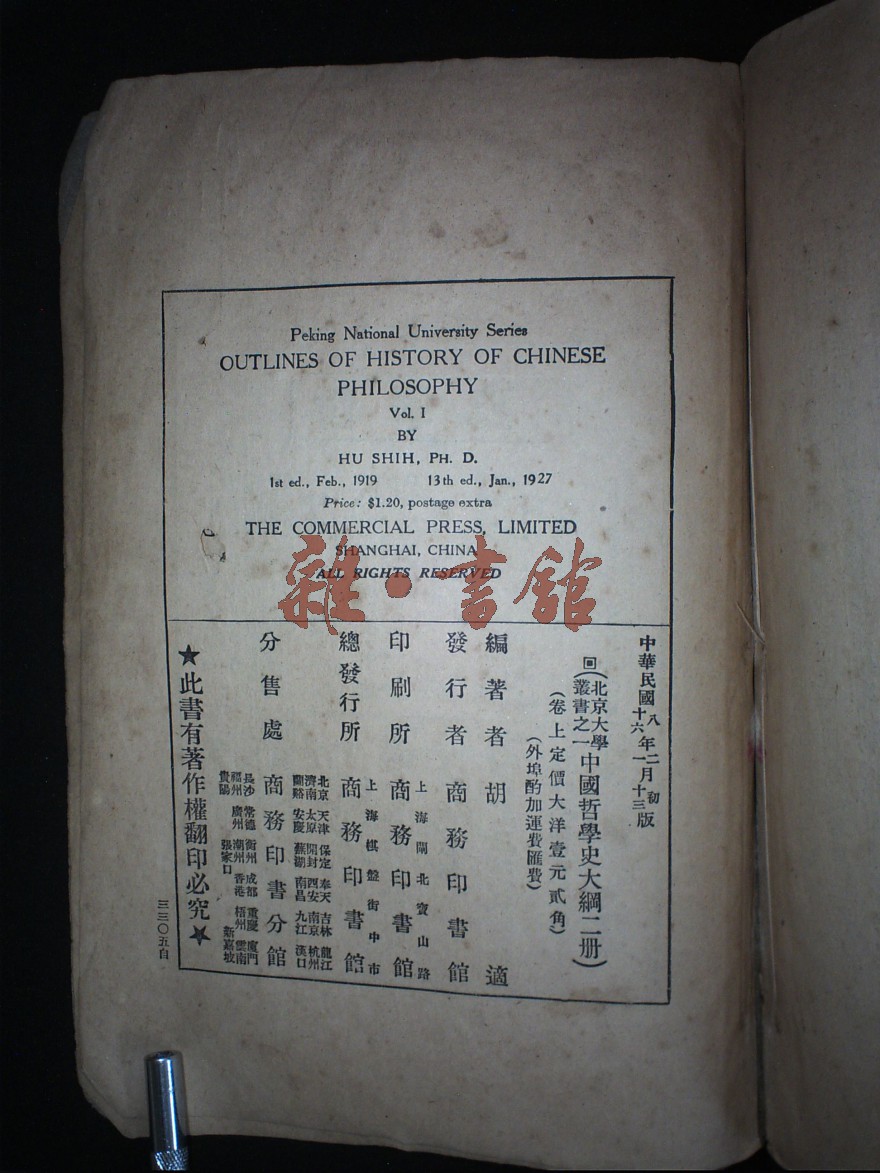 Peking National University Series
OUTLINES OF HISTORY OF CHINESE
PHILOSOPHY
Vol. I
BY
HU SHIH, PH. D.
1st ed., Feb., 1919 13th ed., Jan., 1927
Price: $1.20, postage extra
THE COMMERCIAL PRESS, LIMITED
SHANGHAI, CHINA
ALL RIGHTS RESERVED
雜·書館
中華民國八年二月初版
十六年一月十三版
回(北京大學叢書之一中國哲學史大綱二册)
(卷上定價大洋壹元貳角)
(外埠酌加運費匯費)
編著者 胡適
發行者 商務印書館
印刷所 上海閘北寶山路 商務印書館
總發行所 上海棋盤街中市 商務印書館
分售處 商務印書分館
北京 天津 保定 奉天 吉林 龍江
濟南 太原 開封 西安 南京 杭州
蘭谿 安慶 蕪湖 南昌 九江 漢口
長沙 常德 衡州 成都 重慶 廈門
福州 廣州 潮州 香港 梧州 雲南
貴陽 張家口 新嘉坡
★此書有著作權翻印必究★
三三〇五自